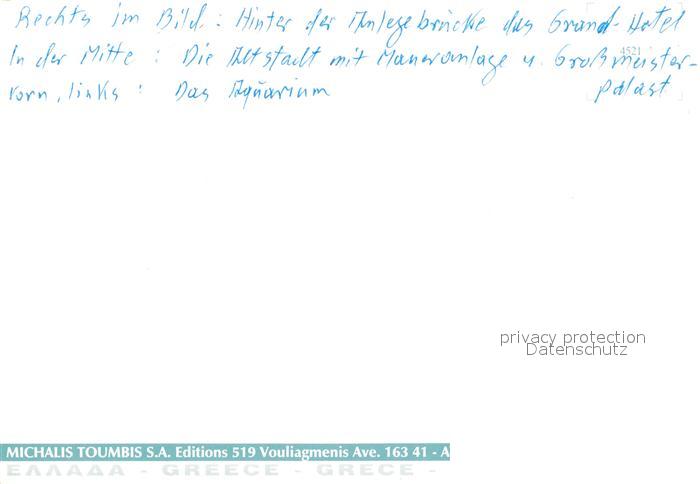 Rechts im Bild: Hinter der Anlegebrücke das Grand-Hotel
In der Mitte: Die Altstadt mit Maueranlage u. Großmeister-
palast
vorn, links: Das Aquarium
4521
privacy protection
Datenschutz
MICHALIS TOUMBIS S.A. Editions 519 Vouliagmenis Ave. 163 41 - A
ΕΛΛΑΔΑ - GREECE - GRECE -